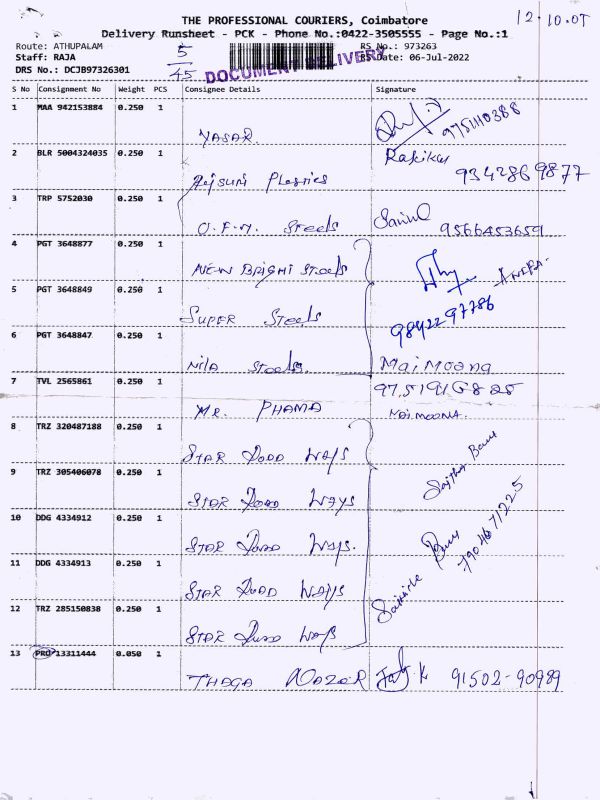 THE PROFESSIONAL COURIERS, Coimbatore
12.10.05
Delivery Runsheet - PCK - Phone No.:0422-3505555 - Page No.:1
Route: ATHUPALAM
RS No.: 973263
Staff: RAJA
5/45
Date: 06-Jul-2022
DRS No.: DCJB97326301
DOCUMENT DELIVERY
S No Consignment No Weight PCS Consignee Details Signature
1 MAA 942153884 0.250 1
YASAR 9751110388
2 BLR 5004324035 0.250 1
Plastics 9342869877
3 TRP 5752030 0.250 1
O.F.M. Steels 9566453659
4 PGT 3648877 0.250 1
NEW BRIGHT Steels
5 PGT 3648849 0.250 1
SUPER Steels 9842297786
6 PGT 3648847 0.250 1
Nila Steels. Maimoona
7 TVL 2565861 0.250 1
MR. PHAMA Maimoona
8 TRZ 320487188 0.250 1
STAR Road Ways Sajitha Banu
9 TRZ 305406078 0.250 1
STAR Road Ways
10 DDG 4334912 0.250 1
STAR Road Ways. 7904671225
11 DDG 4334913 0.250 1
STAR Road Ways
12 TRZ 285150838 0.250 1
STAR Road Ways
13 PRO 13311444 0.050 1
THAGA NAZER 91502-90989